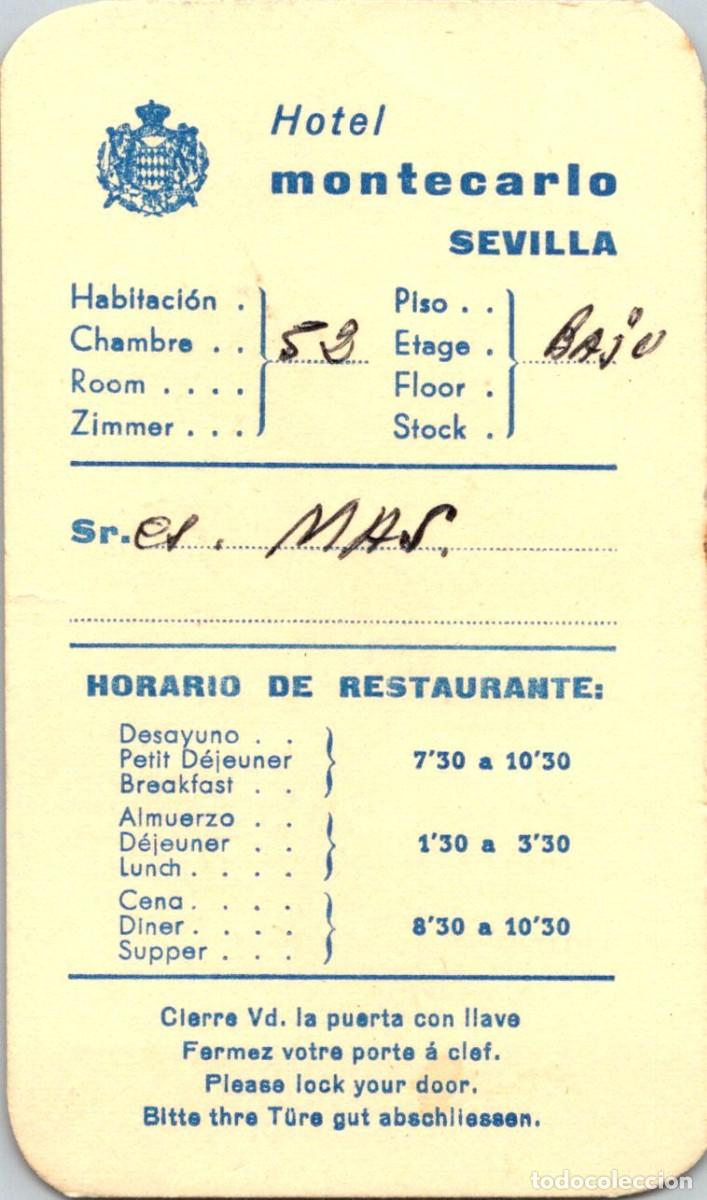 Hotel
montecarlo
SEVILLA
Habitación .
Chambre . .
Room . . . .
Zimmer . . .
52
Piso . .
Etage .
Floor .
Stock .
BAJO
Sr.es. MAS.
HORARIO DE RESTAURANTE:
Desayuno . .
Petit Déjeuner
Breakfast . .
7'30 a 10'30
Almuerzo . .
Déjeuner . .
Lunch. . . .
1'30 a 3'30
Cena. . . .
Diner. . . .
Supper . . .
8'30 a 10'30
Cierre Vd. la puerta con llave
Fermez votre porte á clef.
Please lock your door.
Bitte thre Türe gut abschliessen.
todocoleccion